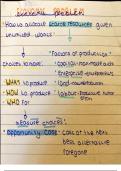 ECONOMIC PROBLEM
•How to allocate scarce resources given
unlimited wants
"Factors of production"
choices to make
•Capital - man-made aids
•Enterprise
•Land - natural
WHAT to produce
HOW to produce
•Labour -
WHO for
measure choices
"Opportunity Cost" - cost of the next
best alternative
foregone